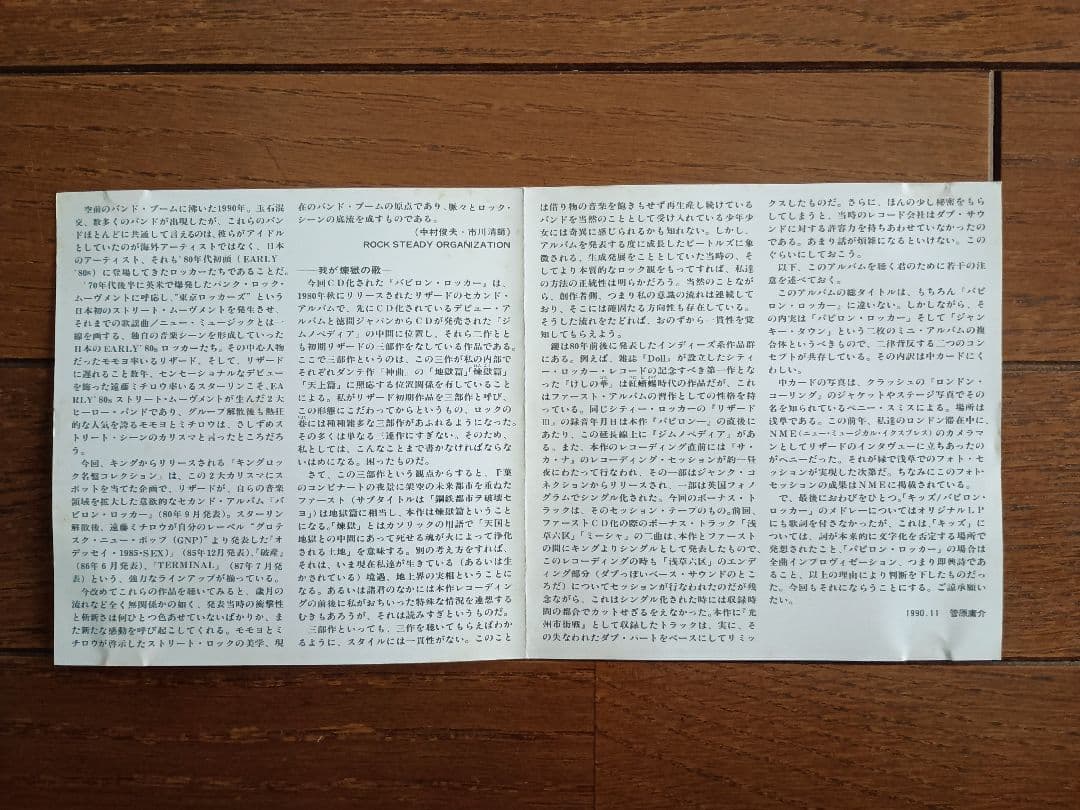 空前のバンド・ブームに沸いた1990年。玉石混
交、数多くのバンドが出現したが、これらのバン
ドほとんどに共通して言えるのは、彼らがアイドル
としていたのが海外アーティストではなく、日本
のアーティスト、それも'80年代初頭(EARLY
'80s)に登場してきたロッカーたちであることだ。
'70年代後半に英米で爆発したパンク・ロック・
ムーヴメントに呼応し、"東京ロッカーズ"という
日本初のストリート・ムーヴメントを発生させ、
それまでの歌謡曲/ニュー・ミュージックとは一
線を画する、独自の音楽シーンを形成していった
日本のEARLY'80sロッカーたち。その中心人物
だったモモヨ率いるリザード、そして、リザード
に遅れること数年、センセーショナルなデビュー
を飾った遠藤ミチロウ率いるスターリンこそ、EA
RLY'80sストリート・ムーヴメントが生んだ2大
ヒーロー・バンドであり、グループ解散後も熱狂
的な人気を誇るモモヨとミチロウは、さしずめス
トリート・シーンのカリスマと言ったところだろ
う。
今回、キングからリリースされる「キングロッ
ク名盤コレクション」は、この2大カリスマにス
ポットを当てた企画で、リザードが、自らの音楽
領域を拡大した意欲的なセカンド・アルバム『バ
ビロン・ロッカー』(80年9月発表)。スターリン
解散後、遠藤ミチロウが自分のレーベル"グロテ
スク・ニュー・ポップ(GNP)"より発表した『オ
デッセイ・1985・SEX』(85年12月発表)、『破産』
(86年6月発表)、『TERMINAL』(87年7月発
表)という、強力なラインアップが揃っている。
今改めてこれらの作品を聴いてみると、歳月の
流れなどを全く無関係かの如く、発表当時の衝撃性
と斬新さは何ひとつ色あせていないばかりか、ま
た新たな感動を呼び起こしてくれる。モモヨとミ
チロウが啓示したストリート・ロックの美学、現
在のバンド・ブームの原点であり、脈々とロック・
シーンの底流を成すものである。
(中村俊夫・市川清師)
ROCK STEADY ORGANIZATION
——我が煉獄の歌——
今回CD化された『バビロン・ロッカー』は、
1980年秋にリリースされたリザードのセカンド・
アルバムで、先にCD化されているデビュー・ア
ルバムと徳間ジャパンからCDが発売された『ジ
ムノペディア』の中間に位置し、それら二作とと
も初期リザードの三部作をなしている作品である。
ここで三部作というのは、この三作が私の内部で
それぞれダンテ作「神曲」の「地獄篇」「煉獄篇」
「天上篇」に照応する位置関係を有していること
による。私がリザード初期作品を三部作と呼び、
この形態にこだわってからというもの、ロックの
巷には種種雑多な三部作があふれるようになった。
その多くは単なる三連作にすぎない。そのため、
私としては、こんなことまで書かなければならな
いはめになる。困ったものだ。
さて、この三部作という観点からすると、千葉
のコンビナートの夜景に架空の未来都市を重ねた
ファースト(サブタイトルは「鋼鉄都市ヲ破壊セ
ヨ」)は地獄篇に相当し、本作は煉獄ということ
になる。「煉獄」とはカソリックの用語で「天国と
地獄との中間にあって死せる魂が火によって浄化
される土地」を意味する。別の考え方をすれば、
それは、いま現在私達が生きている(あるいは生
かされている)境遇、地上界の実相ということに
なる。あるいは諸君のなかには本作レコーディン
グの前後に私がおちいった特殊な情況を連想する
むきもあろうが、それは読みすぎというものだ。
三部作といっても、三作を聴いてもらえばわか
るように、スタイルには一貫性がない。このこと
は借り物の音楽を飽きもせず再生産し続けている
バンドを当然のこととして受け入れている少年少
女には奇異に感じられるかも知れない。しかし、
アルバムを発表する度に成長したビートルズに象
徴される、生成発展をこととしていた当時の、そ
してより本質的なロック観をもってすれば、私達
の方法の正統性は明らかだろう。当然のことなが
ら、創作者側、つまり私の意識の流れは連続して
おり、そこには確固たる方向性も存在している。
そうした流れをたどれば、おのずから一貫性を覚
知してもらえよう。
鍵は80年前後に発表したインディーズ系作品群
にある。例えば、雑誌『Doll』が設立したシティ
ー・ロッカー・レコードの記念すべき第一作とな
った『けしの華』は紅蜥蜴時代の作品だが、これ
はファースト・アルバムの習作としての性格を持
っている。同じシティー・ロッカーの『リザード
III』の録音年月日は本作『バビロン—』の直後に
あたり、この延長線上に『ジムノペディア』があ
る。また、本作のレコーディング直前には『サ・
カ・ナ』のレコーディング・セッションが約一昼
夜にわたって行なわれ、その一部はジャンク・コ
ネクションからリリースされ、一部は英国フォノ
グラムでシングル化された。今回のボーナス・ト
ラックは、そのセッション・テープのもの。前回、
ファーストCD化の際のボーナス・トラック「浅
草六区」「ミーシャ」の二曲は、本作とファースト
の間にキングよりシングルとして発表したもので、
このレコーディングの時も「浅草六区」のエンデ
ィング部分(ダブっぽいベース・サウンドのとこ
ろだ)についてセッションが行なわれたのだが残
念ながら、これはシングル化された時には収録時
間の都合でカットせざるをえなかった。本作に「光
州市街戦」として収録したトラックは、実に、そ
の失なわれたダブ・パートをベースにしてリミッ
クスしたものだ。さらに、ほんの少し秘密をもら
してしまうと、当時のレコード会社はダブ・サウ
ンドに対する許容力を持ちあわせていなかったの
である。あまり話が煩雑になるといけない。この
ぐらいにしておこう。
以下、このアルバムを聴く君のために若干の注
意を述べておく。
このアルバムの総タイトルは、もちろん『バビ
ロン・ロッカー』に違いない。しかしながら、そ
の内実は「バビロン・ロッカー」そして「ジャンキ
ー・タウン」という二枚のミニ・アルバムの複
合体というべきもので、二律背反する二つのコン
セプトが共存している。その内訳は中カードにく
わしい。
中カードの写真は、クラッシュの『ロンドン・
コーリング』のジャケットやステージ写真でその
名を知られているペニー・スミスによる。場所は
浅草である。この前年、私達のロンドン滞在中に、
NME(ニュー・ミュージカル・イクスプレス)のカメラマ
ンとしてリザードのインタヴューに立ちあったの
がペニーだった。それが縁で浅草でのフォト・セ
ッションが実現した次第だ。ちなみにこのフォト・
セッションの成果はNMEに掲載されている。
で、最後におわびをひとつ。「キッズ/バビロン・
ロッカー」のメドレーについてはオリジナルLP
にも歌詞を付さなかったが、これは、「キッズ」に
ついては、詞が本来的に文字化を否定する場所で
発想されたこと、「バビロン・ロッカー」の場合は
全曲インプロヴィゼーション、つまり即興詩であ
ること、以上の理由により判断を下したものだっ
た。今回もそれにならうことにする。ご諒承願い
たい。
1990.11 菅原庸介